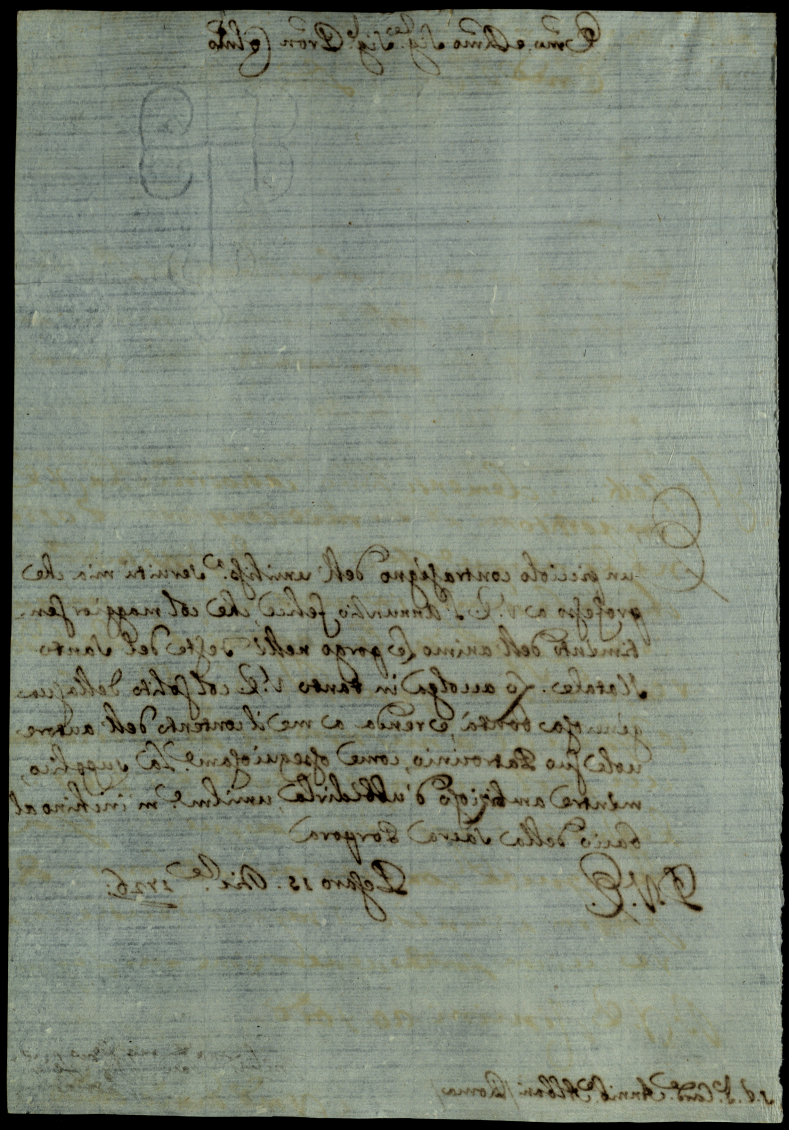 Emo e Rmo Sig.re Sig.re Pron Colmo
È
un picciolo contrasegno dell' umiliss.a servitù mia che
professo a V.E. l'annunzio felice, che col maggior sen-
timento dell' animo Le porgo nelle Feste del Santo
Natale. Lo accolga in tanto V.E. col solito della sua
generosa bontà, e renda a me il contento dell' autore-
uole suo Patrocinio, come ossequiosam.e La supplico,
mentre ambizioso d'ubbidirla, umilm.e m'inchino al
bacio della Sacra Porpora
D.V.E.
Pesaro 15. Xbre 1726.
S.r Card. Annib. Albani Roma